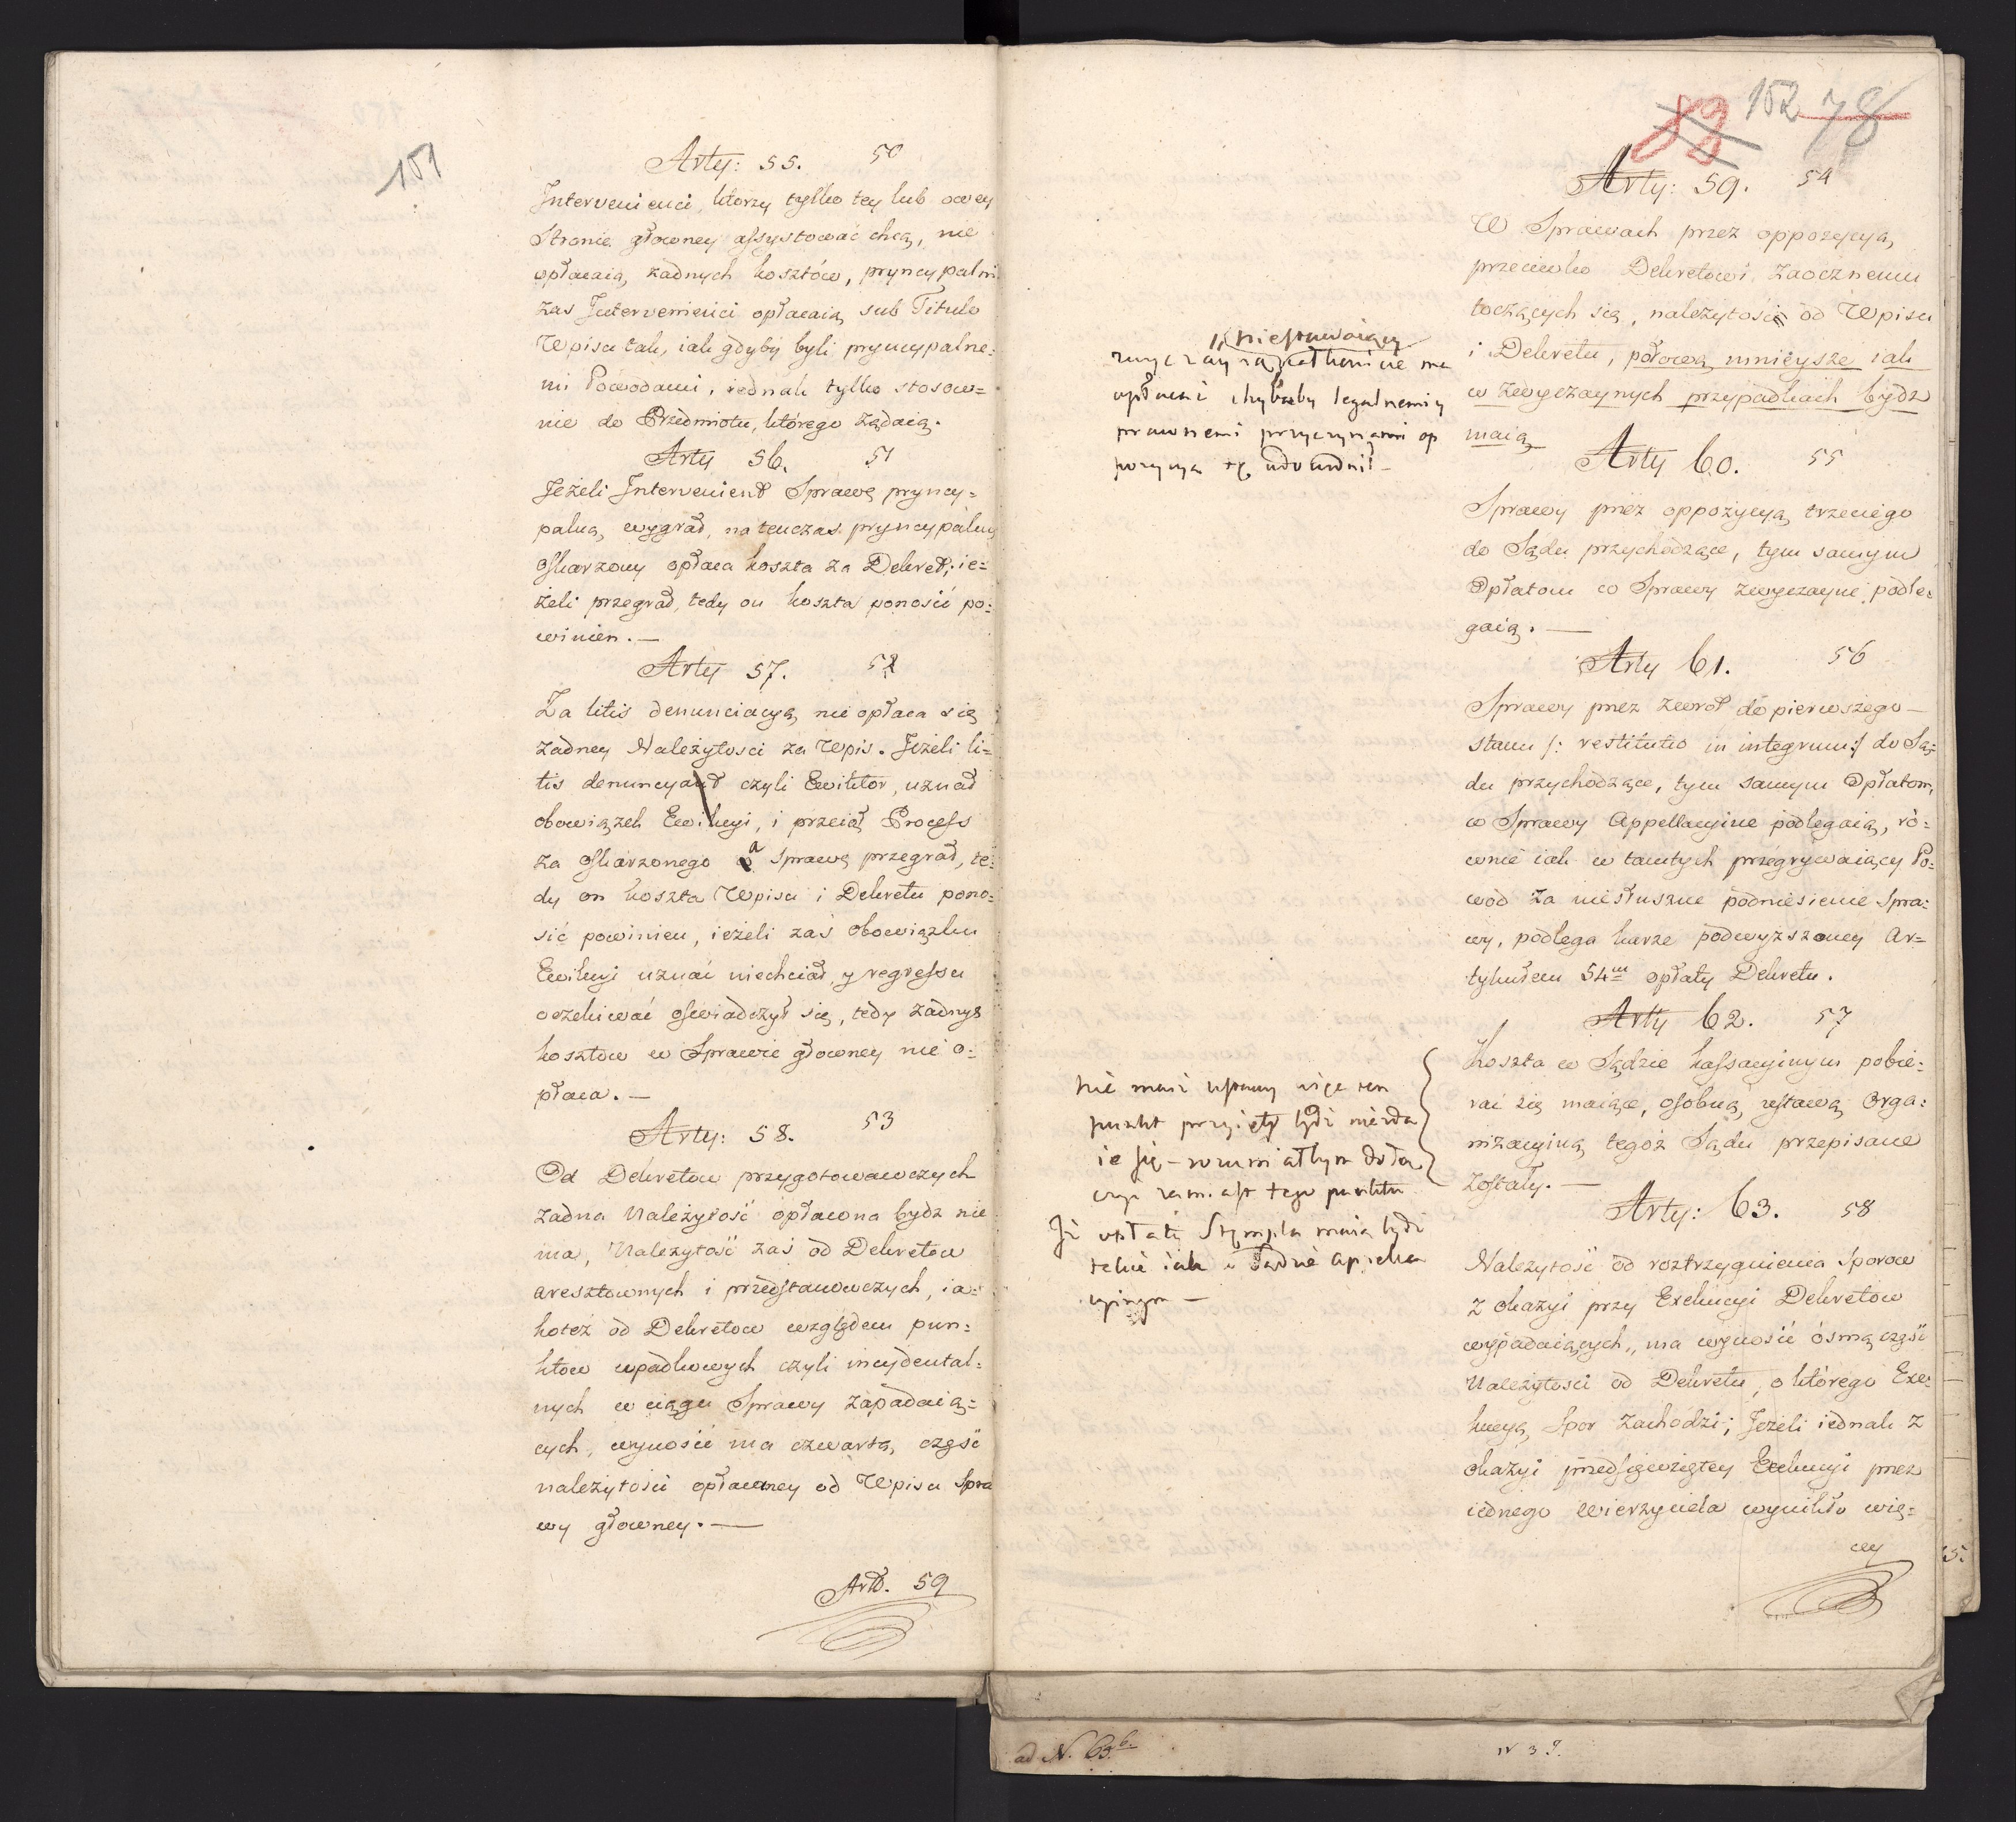 151
Arty: 55. 50
Intervenienci, ktorzy tylko tey lub owey
Stronie głowney assystować chcą, nie
opłacaią żadnych kosztów, pryncypalni
zas Intervenienci opłacaią sub Titulo
Wpisu tak, iak gdyby byli pryncypalne:
mi Powodami, iednak tylko stosow=
nie do Przedmiotu, którego żądaią.
Arty 56. 51
Jeżeli Intervenient Sprawę pryncy=
palną wygrał, natenczas pryncypalny
Oskarzony opłaca koszta za Dekret; ie=
żeli przegrał, tedy on koszta ponosić po:
winien. —
Arty 57. 52
Za litis denunciacyą nie opłaca się
żadney Należytosci za Wpis. Jeżeli li=
tis denuncyant czyli Ewiktor, uznał
obowiązek Ewikcyi, i przeiął Process
za Oskarzonego a Sprawę przegrał, te:
dy on koszta Wpisu i Dekretu pono:
sić powinien, ieżeli zaś obowiązku
Ewikcyi uznać niechciał, y regressu
oczekiwać oswiadczył się, tedy żadnych
kosztow w Sprawie głowney nie o:
płaca. —
Arty: 58. 53
Od Dekretow przygotowawczych
żadna Należytość opłacona bydz nie
ma, Należytość zaś od Dekretow
aresztownych i przedstanowczych, ia=
koteż od Dekretow względem pun:
któw wpadkowych czyli incydental=
nych w ciągu Sprawy zapadaią=
cych, wynosić ma czwartą częśc
należytości opłacaney od Wpisu Spra
wy głowney. —
Art. 59
89 152 78
Arty: 59. 54
W Sprawach przez oppozycyą
przeciwko Dekretowi zaocznemu
toczących się, należytości od Wpisu
i Dekretu, połową mnieysze iak
w zwyczaynych przypadkach bydz
maią
niestawaiący
opłacać chybaby legalnemi y
prawnemi przyczynami op
pozycya tę udowodnił —
Arty 60. 55
Sprawy przez oppozycyą trzeciego
do Sądu przychodzące, tym samym
Opłatom co Sprawy zwyczayne podle:
gaią. —
Arty 61. 56
Sprawy przez zwrot do pierwszego —
stanu /: restitutio in integrum :/ do Są:
du przychodzące, tym samym Opłatom,
co Sprawy Appellacyine podlegaią, ró:
wnie iak w tamtych przegrywaiący Po:
wod za niesłuszne podniesienie Spra:
wy, podlega karze podwyższoney Ar=
tykułem 54m opłaty Dekretu.
Arty 62. 57
Koszta w Sądzie kassacyinym pobie:
rać się maiące, osobną ustawą Orga:
nizacyiną tegoż Sądu przepisane
zostały. —
nie masz ustawy więc ten
punkt przyięty bydź niezda
ie się — rozumiałbym doło
żyć zamiast tego punktu
Iż opłaty Stempla maią bydź
takie iak w Sądzie apella
cyinym —
Arty: 63. 58
Należytość od rozstrzygnienia Sporow
z okazyi przy Exekucyi Dekretow
wypadaiących, ma wynosić ósmą częśc
Należytosci od Dekretu, o którego Exe:
kucyą Spor zachodzi; Jeżeli iednak z
okazyi przedsięwziętey Exekucyi przez
iednego wierzyciela wynikło wię=
cey
ad N. 63 b.
N 39.